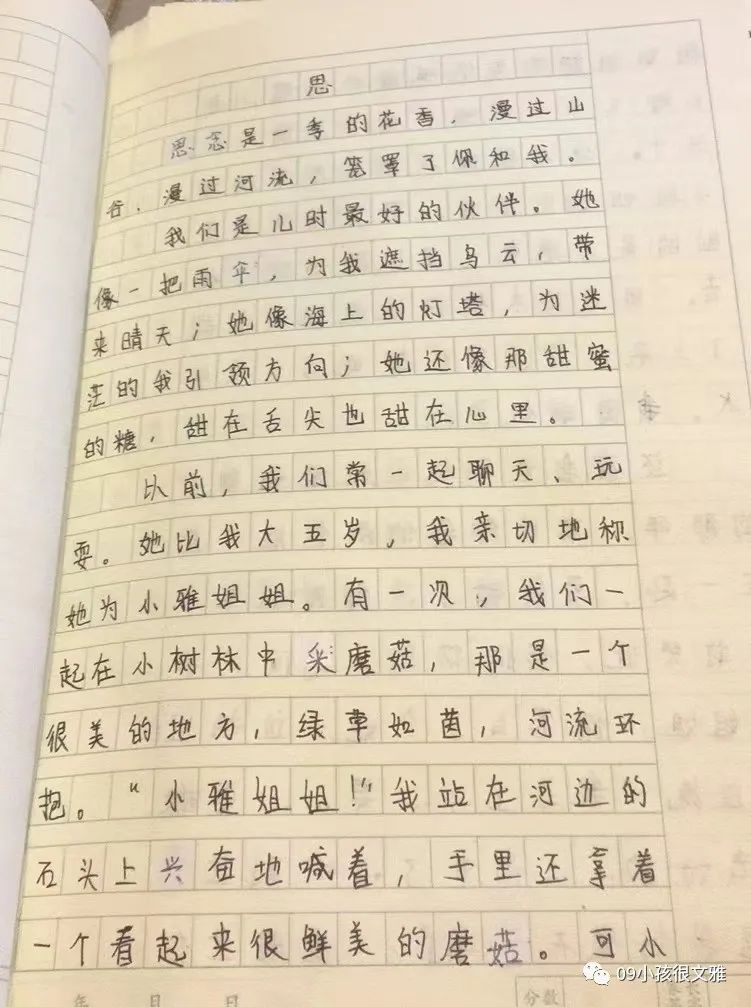 思
思念是一季的花香，漫过山
谷，漫过河流，笼罩了你和我。
我们是儿时最好的伙伴。她
像一把雨伞，为我遮挡乌云，带
来晴天；她像海上的灯塔，为迷
茫的我引领方向；她还像那甜蜜
的糖，甜在舌尖也甜在心里。
以前，我们常一起聊天、玩
耍。她比我大五岁，我亲切地称
她为小雅姐姐。有一次，我们一
起在小树林中采磨菇，那是一个
很美的地方，绿草如茵，河流环
抱。“小雅姐姐！”我站在河边的
石头上兴奋地喊着，手里还拿着
一个看起来很鲜美的磨菇。可小
年 月 日
分数
09小孩很文雅